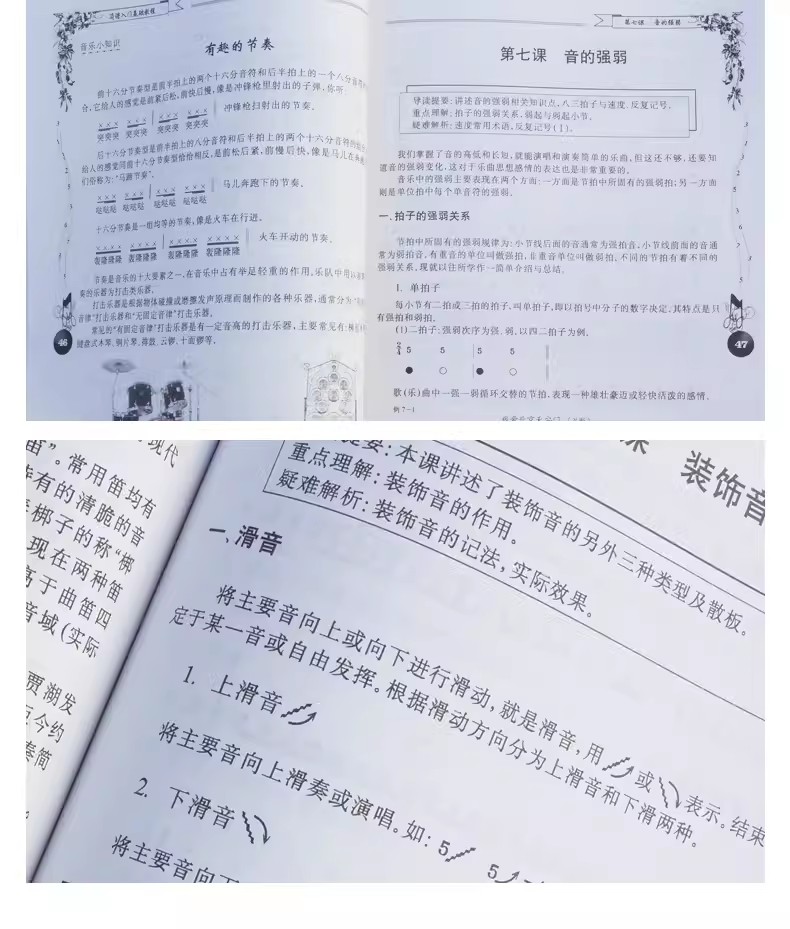 简谱入门基础教程
音乐小知识
有趣的节奏
前十六分节奏型是前半拍上的两个十六分音符和后半拍上的一个八分音符
合,它给人的感觉是前紧后松,前快后慢,像是冲锋枪里射出的子弹,你听:
× × × × × × × × × × × × 冲锋枪扫射出的节奏。
突突突 突突突 突突突 突突突
后十六分节奏型是前半拍上的八分音符和后半拍上的两个十六分音符的
给人的感觉同前十六分节奏型恰恰相反,是前松后紧,前慢后快,像是马儿在奔
们俗称为:“马蹄节奏”。
× × × × × × × × × × × × 马儿奔跑下的节奏。
哒哒哒 哒哒哒 哒哒哒 哒哒哒
十六分节奏是一组均等的节奏,像是火车在行进。
× × × × × × × × × × × × × × × × 火车开动的节奏。
轰隆隆隆 轰隆隆隆 轰隆隆隆 轰隆隆隆
节奏是音乐的十大要素之一,在音乐中占有举足轻重的作用,乐队中用以
奏的乐器为打击类乐器。
打击乐器是根据物体碰撞或磨擦发声原理而制作的各种乐器,通常分为
音律”打击乐器和“无固定音律”打击乐器。
常见的“有固定音律”打击乐器是有一定音高的打击乐器,主要常见有:
键盘式木琴、钢片琴、排鼓、云锣、十面锣等。
46
第七课 音的强弱
第七课 音的强弱
导读提要:讲述音的强弱相关知识点,八三拍子与速度、反复记号。
重点理解:拍子的强弱关系,弱起与弱起小节。
疑难解析:速度常用术语,反复记号( )。
我们掌握了音的高低和长短,就能演唱和演奏简单的乐曲,但这还不够,还要知
道音的强弱变化,这对于乐曲思想感情的表达也是非常重要的。
音乐中的强弱主要表现在两个方面:一方面是节拍中所固有的强弱拍;另一方面
则是单位拍中每个单音符的强弱。
一、拍子的强弱关系
节拍中所固有的强弱规律为:小节线后面的音通常为强拍音,小节线前面的音通
常为弱拍音,有重音的单位叫做强拍,非重音单位叫做弱拍,不同的节拍有着不同的
强弱关系,现就以往所学作一简单介绍与总结。
1. 单拍子
每小节有二拍或三拍的拍子,叫单拍子,即以拍号中分子的数字决定,其特点是只
有强拍和弱拍。
(1)二拍子:强弱次序为强、弱,以四二拍子为例。
2/4 5 5 5 5
● ○ ● ○
歌(乐)曲中一强一弱循环交替的节拍,表现一种雄壮豪迈或轻快活泼的感情。
例 7-1
47
现代
笛”。常用笛均有
有的清脆的音
梆子的称“梆
现在两种笛
高于曲笛四
音域(实际
贾湖发
今约
奏简
课 装饰音
提要:本课讲述了装饰音的另外三种类型及散板。
重点理解:装饰音的作用。
疑难解析:装饰音的记法,实际效果。
一、滑音
将主要音向上或向下进行滑动,就是滑音,用 或 表示。结束
定于某一音或自由发挥。根据滑动方向分为上滑音和下滑两种。
1. 上滑音
将主要音向上滑奏或演唱。如: 5 5
2. 下滑音
将主要音向下